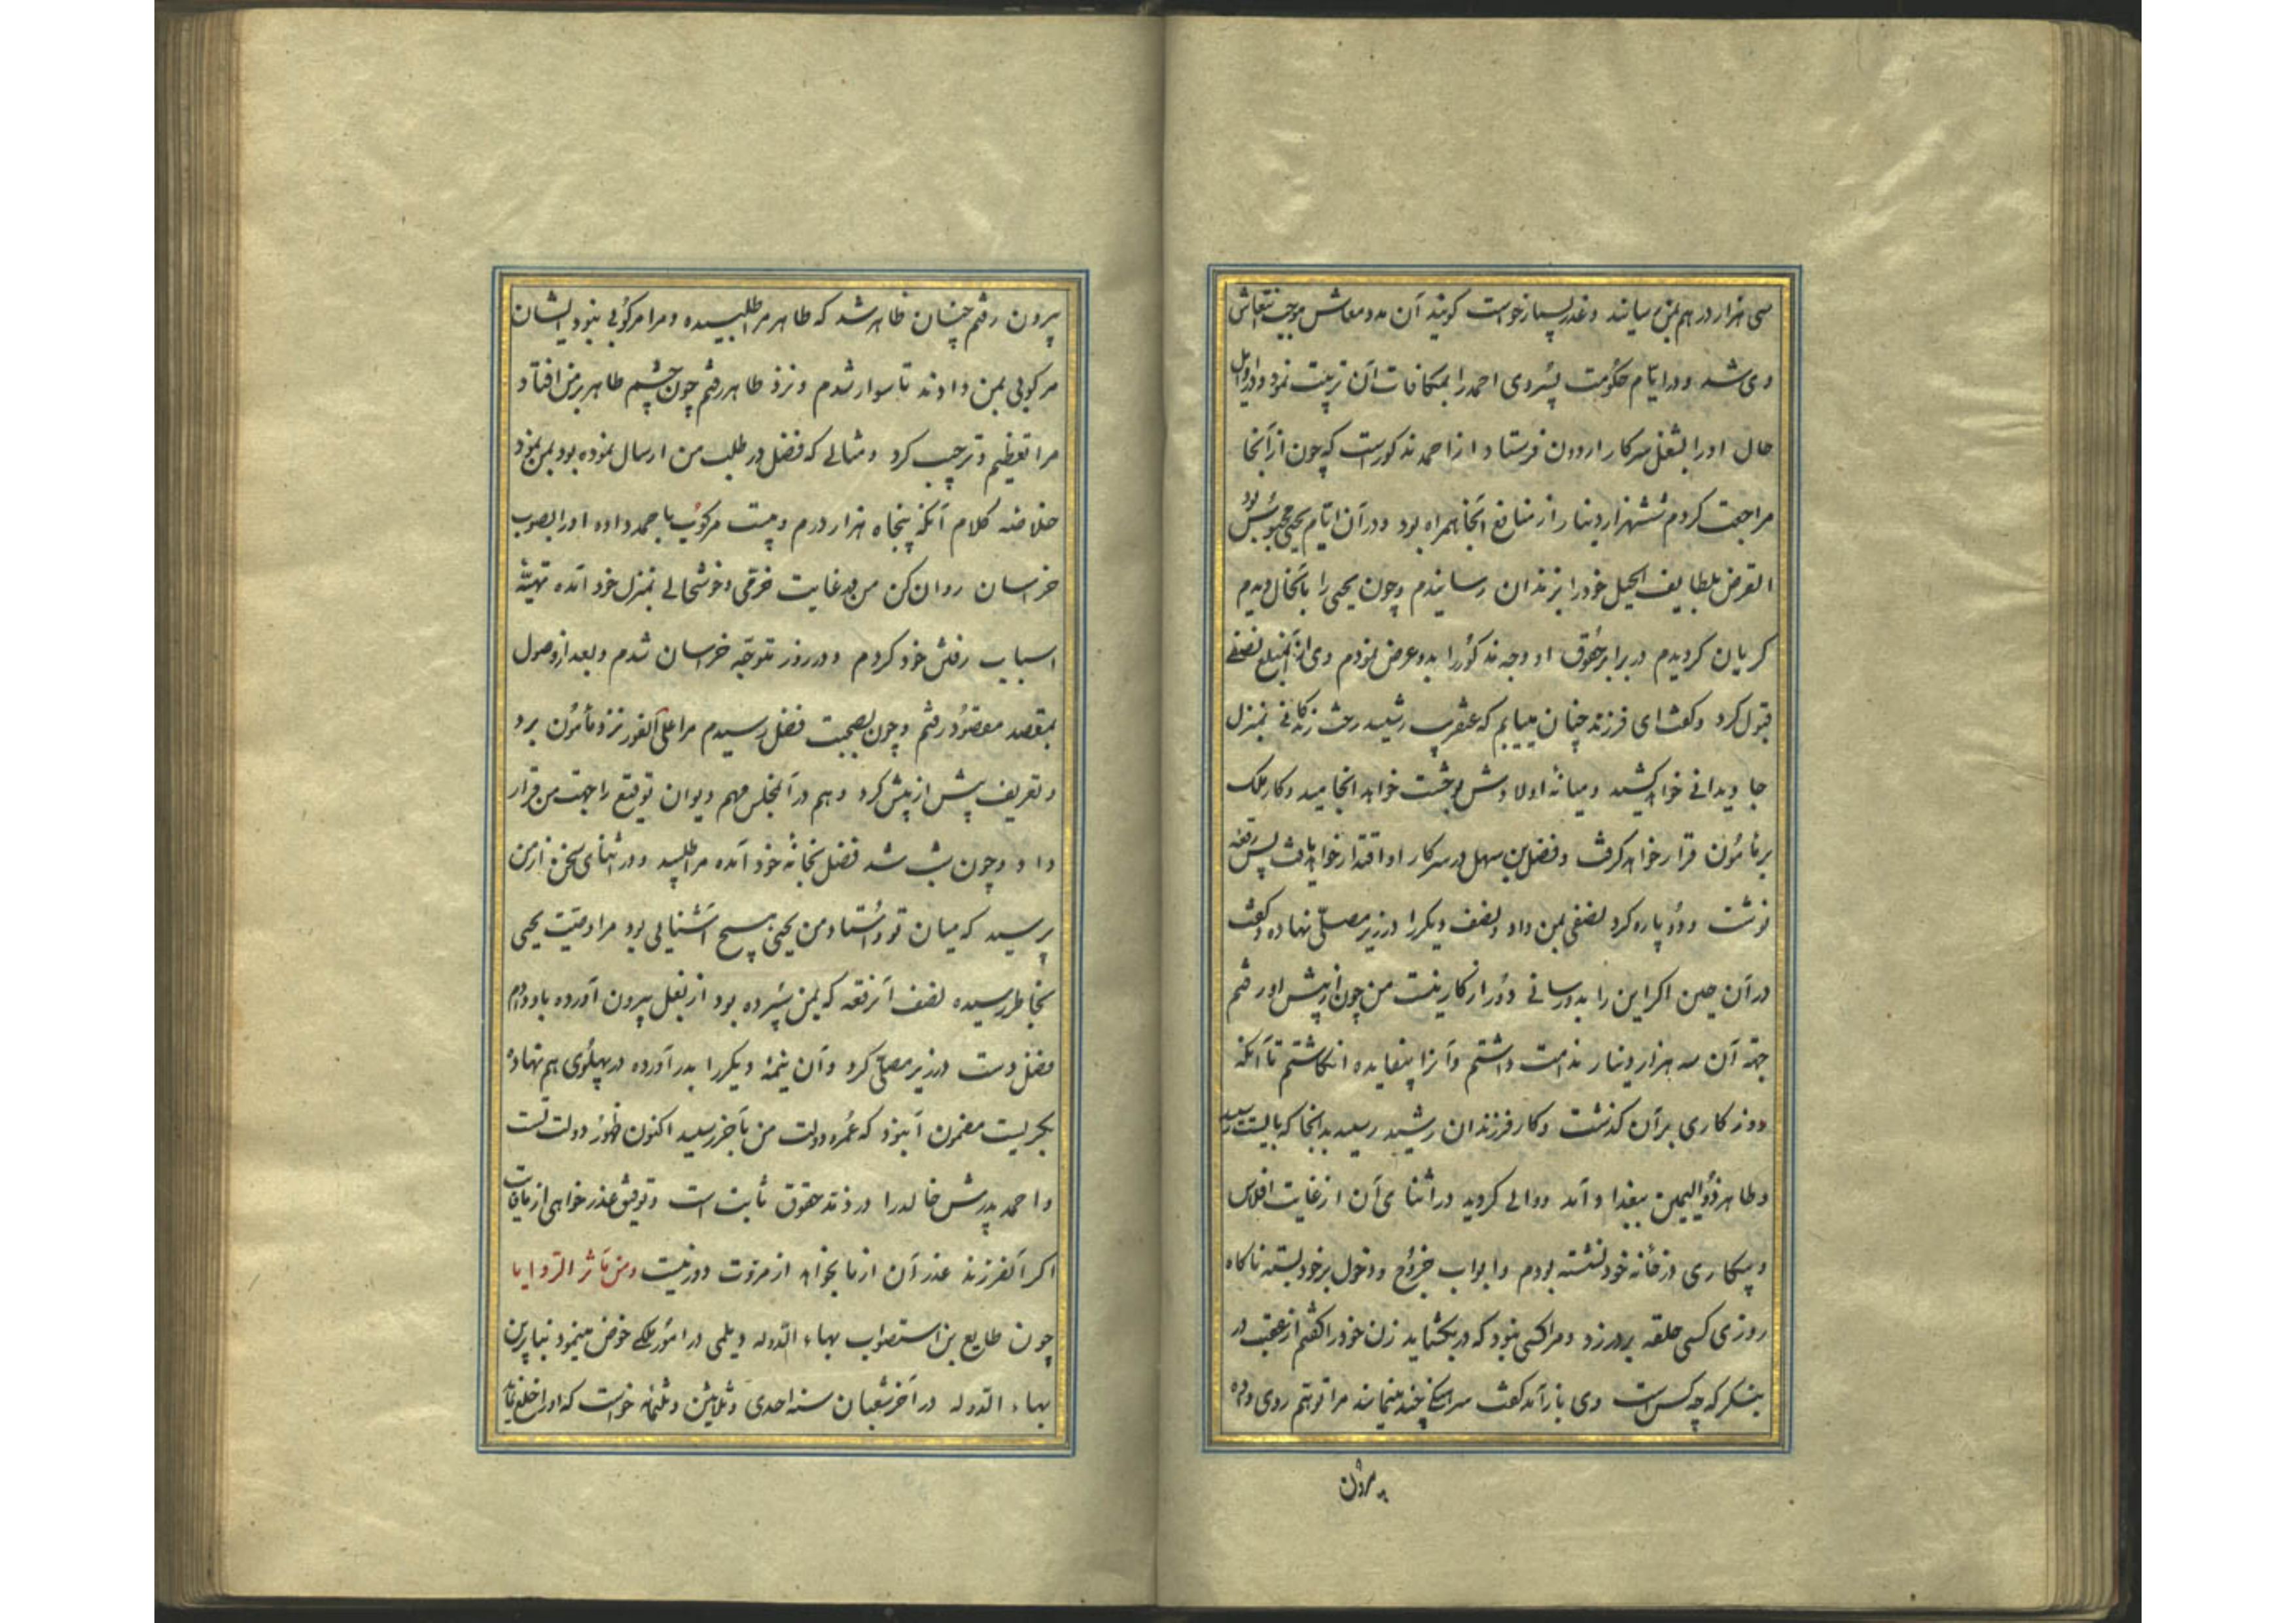 سی هزار درهم بمن رسانند و عذر بسیار خواست کویند آن مدد معاش موجب انتعاش
وی شد و در ایام حکومت پسر وی احمد را بمکافات آن تربیت نمود و در اوایل
حال او را بشغل سرکار اردون فرستاد از احمد مذکورست که چون از آنجا
مراجعت کردم ششهزار دینار از منافع آنجا همراه بود و در آن ایام یحیی محبوس بود
الغرض بلطایف الحیل خود را بزندان رسانیدم و چون یحیی را بآنحال دیدم
کریان کردیدم در برابر حقوق او وجه مذکور را بدو عرض نمودم وی از آنمبلغ نصفی
قبول کرد و کفت ای فرزند چنان مییابم که عنقریب رشید رخت زندکانی بمنزل
جاویدانی خواهد کشید و میانه اولادش بوحشت خواهد انجامید و کار ملک
بر مأمون قرار خواهد کرفت و فضل بن سهل در سرکار او اقتدار خواهد یافت پس رقعه
نوشت و دو پاره کرد نصفی بمن داد و نصف دیکر را در زیر مصلی نهاده و کفت
در آن حین اکر این را بدو رسانی دور از کار نیست من چون از پیش او رفتم
جهة آن سه هزار دینار ندامت داشتم و آنرا بیفایده انکاشتم تا آنکه
روزکاری بر آن کذشت و کار فرزندان رشید رسید بدانجا که بایست رسید
و طاهر ذوالیمین ببغداد آمد و والی کردید در اثنای آن از غایت افلاس
و بیکاری در خانه خود نشسته بودم و ابواب خروج و دخول بر خود بسته ناکاه
روزی کسی حلقه بر در زد و مرا کسی نبود که در بکشاید زن خود را کفتم از عقب در
بنکر که چه کس است وی باز آمد کفت سرهنکی چند مینمایند مرا توهم روی داده
بیرون
بیرون رفتم چنان ظاهر شد که طاهر مرا طلبیده و مرا مرکوبی نبود ایشان
مرکوبی بمن دادند تا سوار شدم و نزد طاهر رفتم چون چشم طاهر بر من افتاد
مرا تعظیم و ترحیب کرد و مثالی که فضل در طلب من ارسال نموده بود بمن نمود
خلاصه کلام آنکه پنجاه هزار درم و بیست مرکوب باحمد داده او را بصوب
خراسان روان کن من در غایت خرمی و خوشحالی بمنزل خود آمده تهیهٔ
اسباب رفتن خود کردم و در روز متوجه خراسان شدم و بعد از وصول
بمقصد مقصود رفتم و چون بصحبت فضل رسیدم مرا علی الفور نزد مأمون برد
و تعریف بیش از پیش کرد و هم در آنمجلس مهم دیوان توقیع را جهت من قرار
داد و چون شب شد فضل بخانه خود آمده مرا طلبید و در اثنای سخن از من
پرسید که میان تو و استاد من یحیی هیچ آشنایی بود مرا وصیت یحیی
بخاطر رسیده نصف آن رقعه که بمن سپرده بود از بغل بیرون آورده باو دادم
فضل دست در زیر مصلی کرد و آن نیمهٔ دیکر را بدر آورده در پهلوی هم نهاده
نکریست مضمون آنبود که عمر و دولت من بآخر رسید اکنون ظهور دولت تست
و احمد پدرش خالد را در ذمت حقوق ثابت است و توفیق عذرخواهی از ما فات
اکر آنفرزند عذر آن از ما بخواهد از مروت دور نیست و من مآثر الروایا
چون طایع بی استصواب بهاء الدوله دیلمی در امور ملکی خوض مینمود بنابرین
بهاء الدوله در آخر شعبان سنه احدی و ثلاثین و ثلثمائه خواست که او را خلع نماید